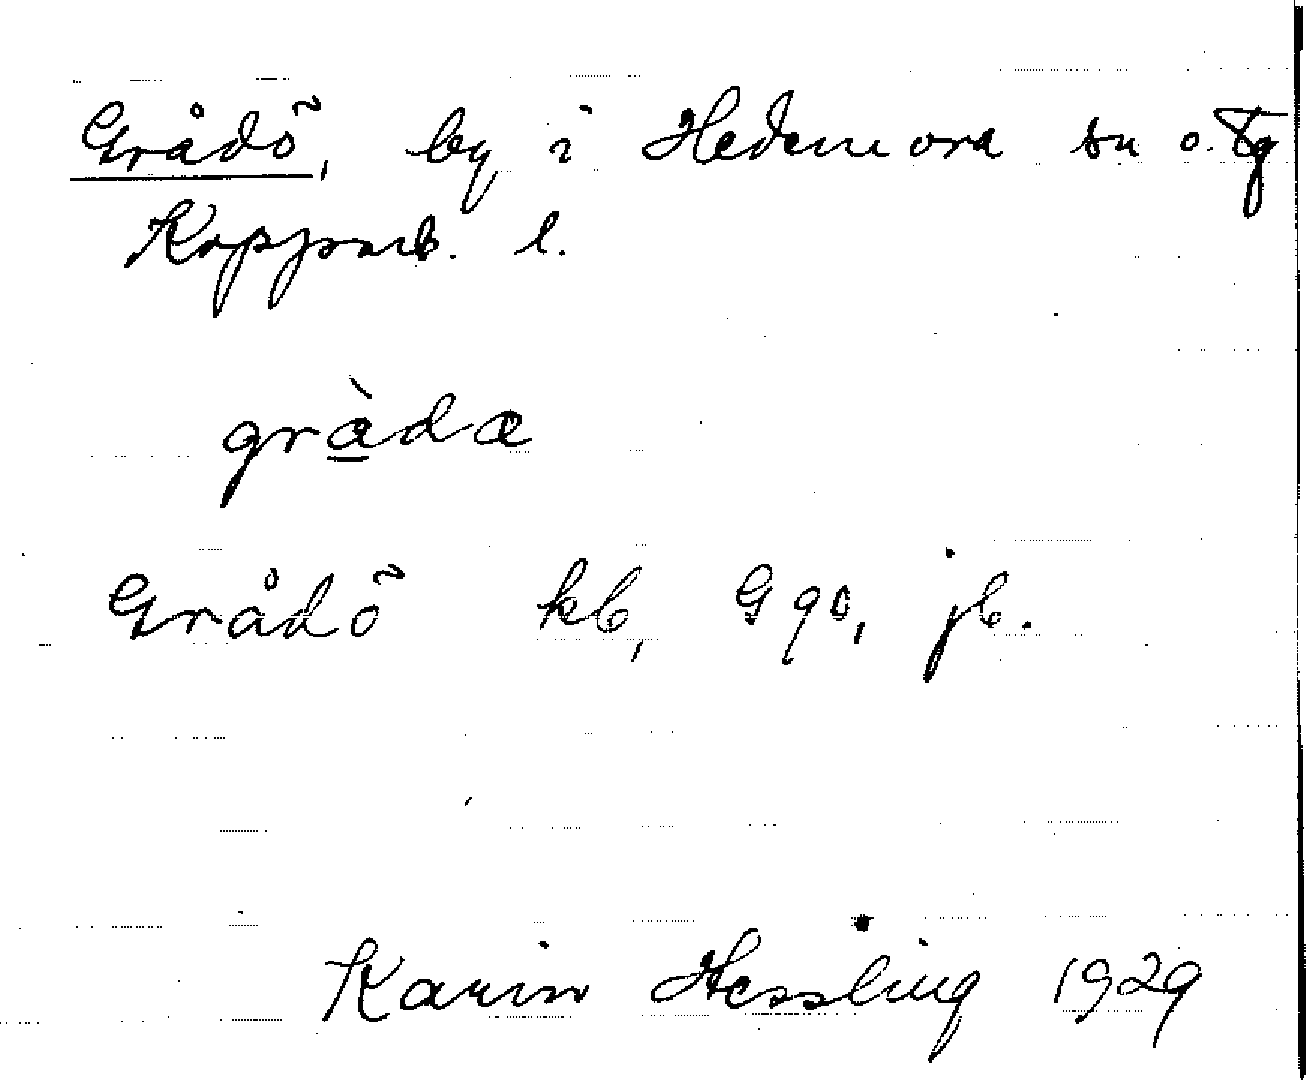 Grådö, by i Hedemora sn o. Tg
Kopparb. l.
gràda
Grådö kb, Gqo, jb.
Karin Hessling 1929